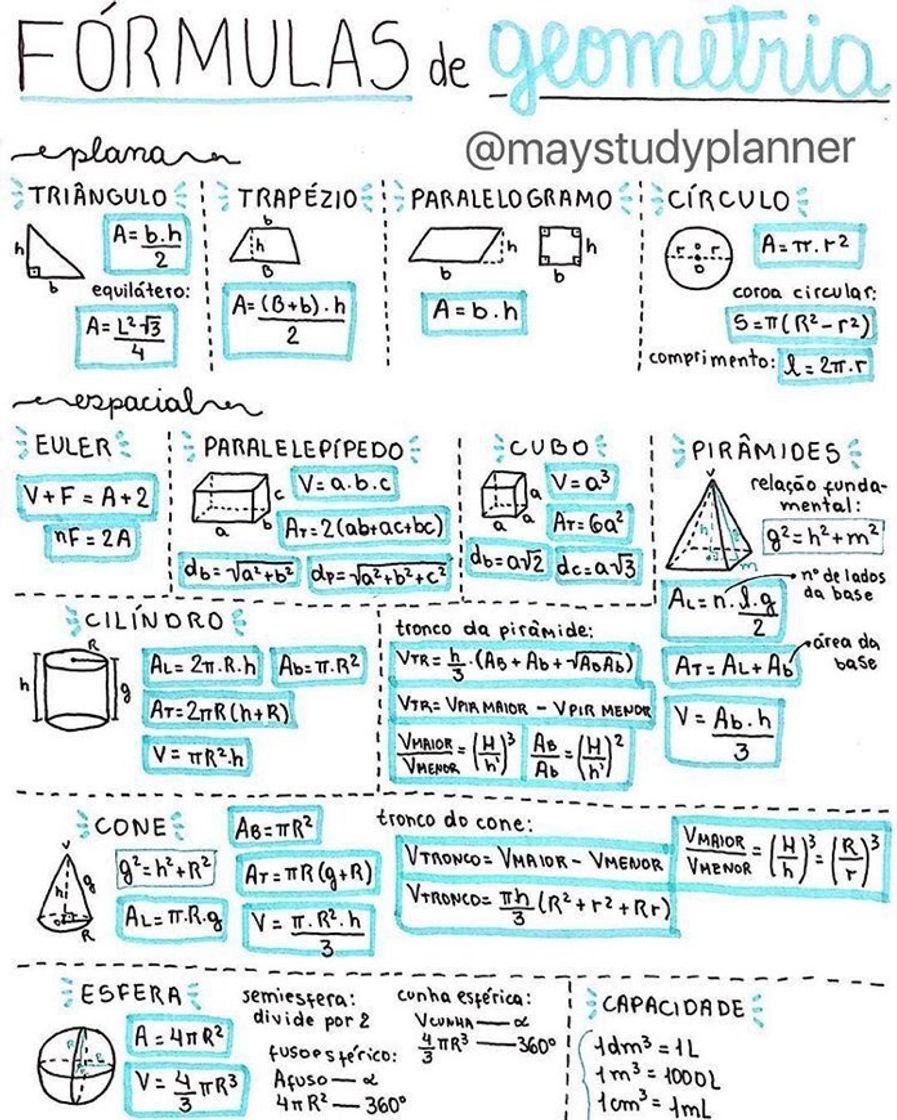 FÓRMULAS de geometria
@maystudyplanner
plana
TRIÂNGULO
h
b
A = b.h/2
equilátero:
A = L²√3/4
TRAPÉZIO
b
h
B
A = (B+b).h/2
PARALELOGRAMO
h
b
h
b
A = b.h
CÍRCULO
r r
D
A = π.r²
coroa circular:
S = π(R²-r²)
comprimento: l = 2π.r
espacial
EULER
V + F = A + 2
nF = 2A
PARALELEPÍPEDO
a
b
c
V = a.b.c
AT = 2(ab+ac+bc)
db = √a²+b²
dp = √a²+b²+c²
CUBO
a
a
a
V = a³
AT = 6a²
db = a√2
dc = a√3
PIRÂMIDES
V
h
g
m
relação funda-
mental:
g² = h² + m²
AL = n. l.g/2
nº de lados
da base
AT = AL + Ab
área da
base
V = Ab.h/3
CILÍNDRO
R
h
g
AL = 2π.R.h
Ab = π.R²
AT = 2πR(h+R)
V = πR².h
tronco da pirâmide:
VTR = h/3.(AB + Ab + √ABAb)
VTR = VPIR MAIOR - VPIR MENOR
VMAIOR/VMENOR = (H/h)³
AB/Ab = (H/h)²
CONE
V
h
g
R
g² = h² + R²
AL = π.R.g
AB = πR²
AT = πR(g+R)
V = π.R².h/3
tronco do cone:
VTRONCO = VMAIOR - VMENOR
VTRONCO = πh/3(R² + r² + Rr)
VMAIOR/VMENOR = (H/h)³ = (R/r)³
ESFERA
R
R
A = 4πR²
V = 4/3 πR³
semiesfera:
divide por 2
fuso esférico:
Afuso — α
4πR² — 360°
cunha esférica:
VCUNHA — α
4/3 πR³ — 360°
CAPACIDADE
1dm³ = 1L
1m³ = 1000L
1cm³ = 1mL